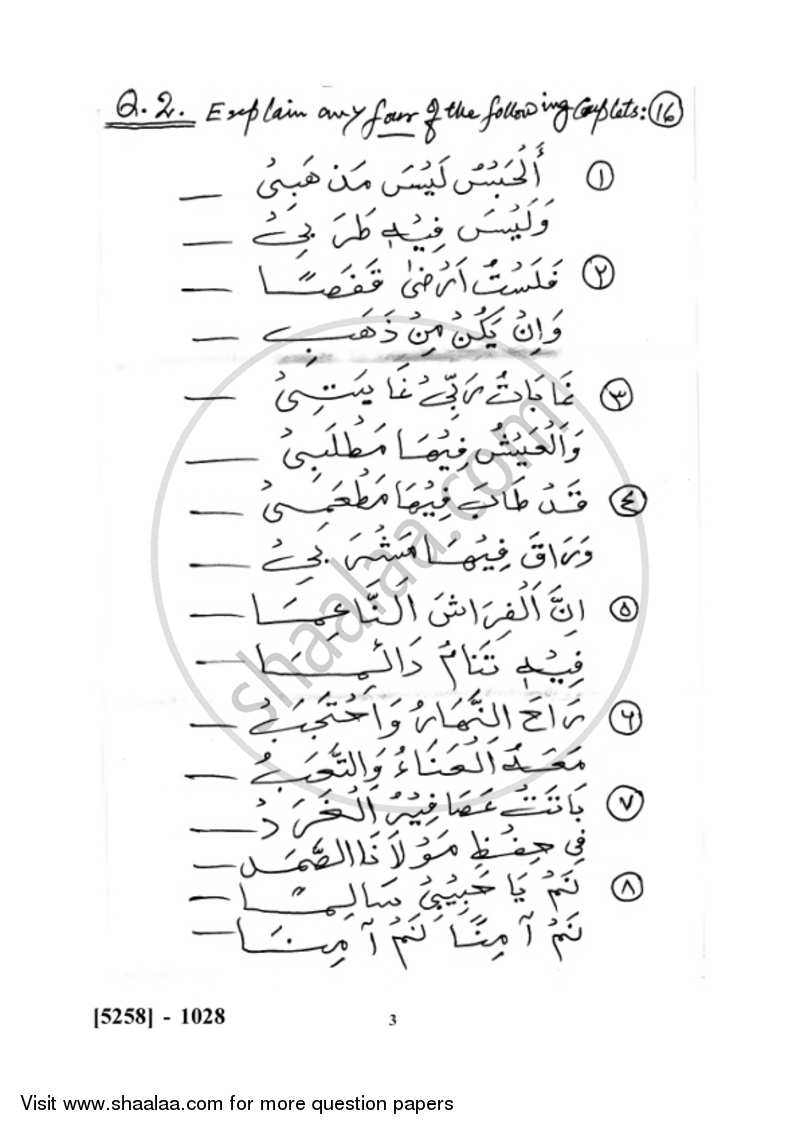 Q.2. Explain any four of the following Couplets: (16)
(١) أَلْحَبْسُ لَيْسَ مَذْهَبِيْ —
وَلَيْسَ فِيْهِ طَرَبِيْ —
(٢) فَلَسْتُ اَرْضٰى قَفَصًا —
وَاِنْ يَكُنْ مِنْ ذَهَبِ —
(٣) غَابَاتُ رَبِّيْ غَايَتِيْ —
وَالْعَيْشُ فِيْهَا مَطْلَبِيْ —
(٤) قَدْ طَابَ فِيْهَا مَطْعَمِيْ —
وَرَاقَ فِيْهَا مَشْرَبِيْ —
(٥) اِنَّ الْفِرَاشَ النَّاعِمَا —
فِيْهِ تَنَامُ دَائِمَا —
(٦) رَاحَ النَّهَارُ وَاحْتَجَبْ —
مَعَهُ الْعَنَاءُ وَالتَّعَبُ —
(٧) بَاتَتْ عَصَافِيْرُ الْغَرَدْ —
فِي حِفْظِ مَوْلَانَا الصَّمَد —
(٨) نَمْ يَا حَبِيْبِيْ سَالِمًا —
نَمْ آمِنًا نَمْ آمِنَا —
[5258] - 1028
3
Visit www.shaalaa.com for more question papers
shaalaa.com